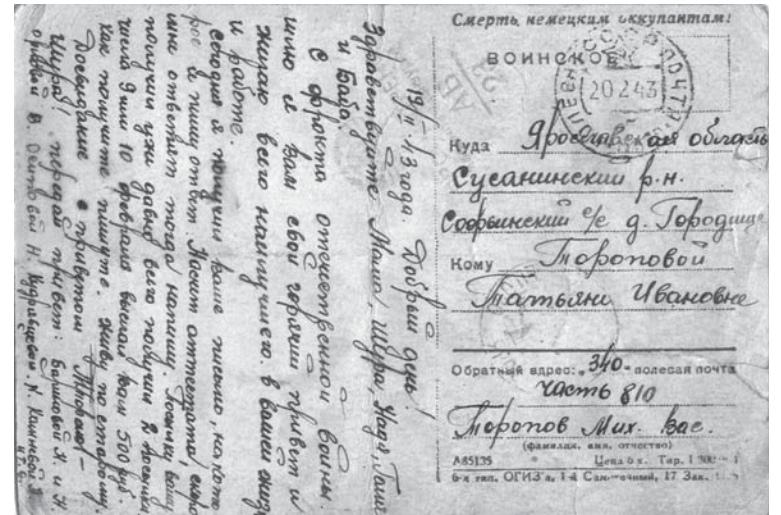 Смерть немецким оккупантам!
ВОИНСКОЕ
20 2 43
Куда Ярославская область
Сусанинский р-н.
Софьинский с/с д. Городище
Кому Тороповой
Татьяне Ивановне
Обратный адрес: „340- полевая почта
часть 810
Торопов Мих. Вас.
(фамилия, имя, отчество)
А85135 Цена б к. Тир. 1
6-я тип. ОГИЗ'а, 1-й Самотечный, 17 Зак.
19/II-43 года. Добрый день!
Здравствуйте Мама, Шура, Надя, Галя
и Баба.
С фронта отечественной войны.
шлю я Вам свой горячий привет и
желаю всего наилучшего в вашей жизни
и работе.
Сегодня я получил ваше письмо, на кото
рое я пишу ответ. Насчет аттестата, скоро
мне ответят тогда напишу. Посылки ваши
получил уже давно всего получил 2 посылки
числа 9 или 10 февраля выслал Вам 500 руб.
как получите пишите. Живу по старому.
Досвидание с приветом
Шура! передай привет: